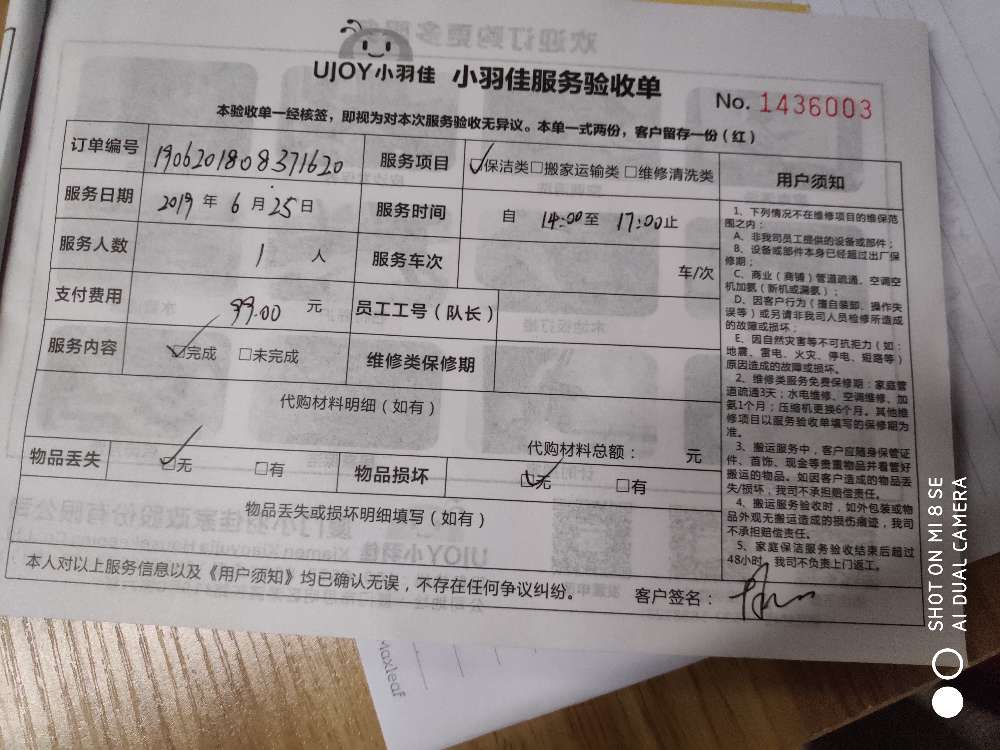 UJOY小羽佳 小羽佳服务验收单
No. 1436003
本验收单一经核签，即视为对本次服务验收无异议。本单一式两份，客户留存一份（红）
订单编号 190620180837162​0 服务项目 保洁类□搬家运输类 □维修清洗类
服务日期 2019 年 6 月 25 日 服务时间 自 14:00 至 17:00 止
服务人数 1 人 服务车次 车/次
支付费用 99.00 元 员工工号（队长）
服务内容 完成 □未完成 维修类保修期
代购材料明细（如有）
代购材料总额： 元
物品丢失 无 □有 物品损坏 无 □有
物品丢失或损坏明细填写（如有）
用户须知
1、下列情况不在维修项目的维保范
围之内：
A、非我司员工提供的设备或部件；
B、设备或部件本身已经超过出厂保
修期；
C、商业（商铺）管道疏通、空调空
机加氨（新机或漏氨）；
D、因客户行为（擅自装卸、操作失
误等）或另请非我司人员检修所造成
的故障或损坏；
E、因自然灾害等不可抗拒力（如：
地震、雷电、火灾、停电、短路等）
原因造成的故障或损坏。
2、维修类服务免费保修期：家庭管
道疏通3天；水电维修、空调维修、加
氨1个月；压缩机更换6个月。其他维
修项目以服务验收单填写的保修期为
准。
3、搬运服务中，客户应随身保管证
件、首饰、现金等贵重物品并看管好
搬运的物品。如因客户造成的物品丢
失/损坏，我司不承担赔偿责任。
4、搬运服务验收时，如外包装或物
品外观无搬运造成的损伤痕迹，我司
不承担赔偿责任。
5、家庭保洁服务验收结束后超过
48小时，我司不负责上门返工。
本人对以上服务信息以及《用户须知》均已确认无误，不存在任何争议纠纷。 客户签名：
Maxleaf
SHOT ON MI 8 SE
AI DUAL CAMERA